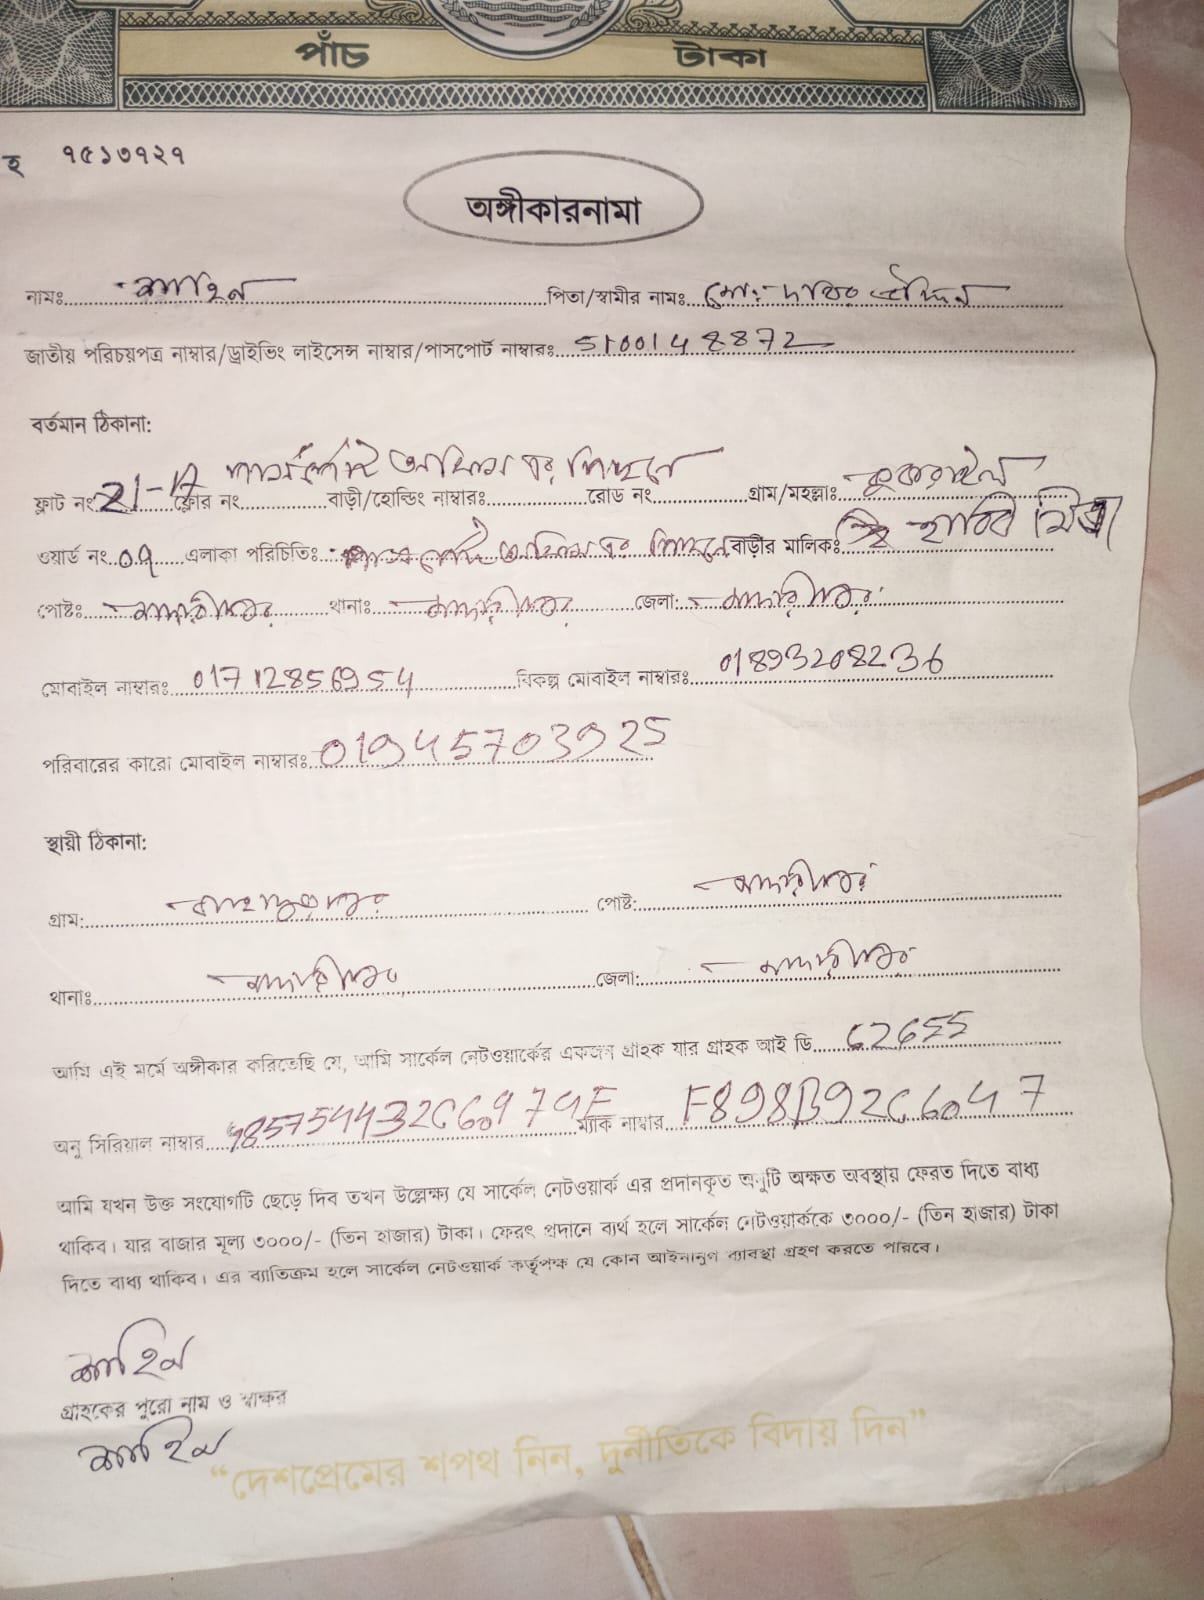 পাঁচ টাকা
হ ৭৫১৩৭২৭
অঙ্গীকারনামা
নামঃ পিতা/স্বামীর নামঃ মোঃ
জাতীয় পরিচয়পত্র নাম্বার/ড্রাইভিং লাইসেন্স নাম্বার/পাসপোর্ট নাম্বারঃ 5100148872
বর্তমান ঠিকানা:
পাসপোর্ট অফিসের পিছনে
ফ্লাট নং ফ্লোর নং বাড়ী/হোল্ডিং নাম্বারঃ রোড নং গ্রাম/মহল্লাঃ কুকরাইল
ওয়ার্ড নং 09 এলাকা পরিচিতিঃ পাসপোর্ট অফিসের পিছনে বাড়ীর মালিকঃ হাবিব মিয়া
পোষ্টঃ মাদারীপুর থানাঃ মাদারীপুর জেলা: মাদারীপুর
মোবাইল নাম্বারঃ 01712856954 বিকল্প মোবাইল নাম্বারঃ 01893208236
পরিবারের কারো মোবাইল নাম্বারঃ 01945703925
স্থায়ী ঠিকানা:
গ্রাম: পোষ্ট: মাদারীপুর
থানাঃ মাদারীপুর জেলা: মাদারীপুর
আমি এই মর্মে অঙ্গীকার করিতেছি যে, আমি সার্কেল নেটওয়ার্কের একজন গ্রাহক যার গ্রাহক আই ডি 62655
অনু সিরিয়াল নাম্বার ম্যাক নাম্বার F898B92C6047
আমি যখন উক্ত সংযোগটি ছেড়ে দিব তখন উল্লেক্ষ্য যে সার্কেল নেটওয়ার্ক এর প্রদানকৃত অনুটি অক্ষত অবস্থায় ফেরত দিতে বাধ্য
থাকিব। যার বাজার মূল্য ৩০০০/- (তিন হাজার) টাকা। ফেরৎ প্রদানে ব্যর্থ হলে সার্কেল নেটওয়ার্ককে ৩০০০/- (তিন হাজার) টাকা
দিতে বাধ্য থাকিব। এর ব্যাতিক্রম হলে সার্কেল নেটওয়ার্ক কর্তৃপক্ষ যে কোন আইনানুগ ব্যাবস্থা গ্রহণ করতে পারবে।
গ্রাহকের পুরো নাম ও স্বাক্ষর
“দেশপ্রেমের শপথ নিন, দুর্নীতিকে বিদায় দিন”